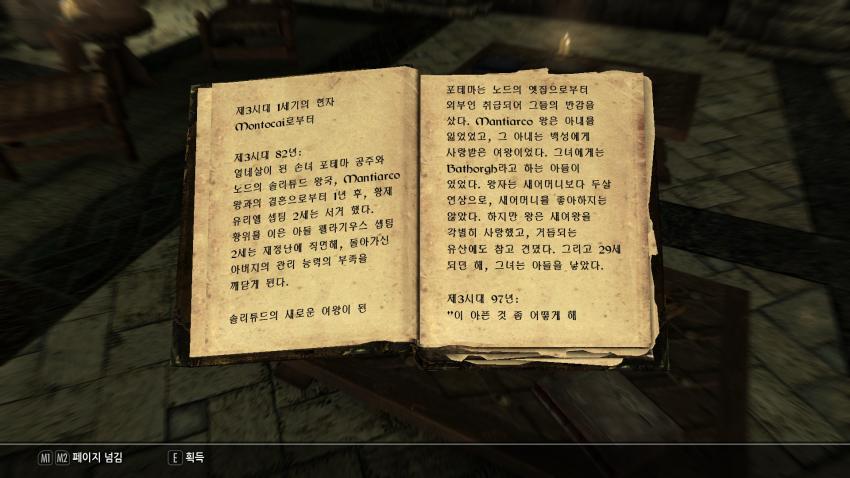 제3시대 1세기의 현자
Montocai로부터
제3시대 82년:
열네살이 된 손녀 포테마 공주와
노드의 솔리튜드 왕국, Mantiarco
왕과의 결혼으로부터 1년 후, 황제
유리엘 셉팀 2세는 서거 했다.
왕위를 이은 아들 펠라기우스 셉팀
2세는 재정난에 직면해, 돌아가신
아버지의 관리 능력의 부족을
깨닫게 된다.
솔리튜드의 새로운 여왕이 된
포테마는 노드의 옛집으로부터
외부인 취급되어 그들의 반감을
샀다. Mantiarco 왕은 아내를
잃었었고, 그 아내는 백성에게
사랑받은 여왕이었다. 그녀에게는
Bathorgh라고 하는 아들이
있었다. 왕자는 새어머니보다 두살
연상으로, 새어머니를 좋아하지는
않았다. 하지만 왕은 새여왕을
각별히 사랑했고, 거듭되는
유산에도 참고 견뎠다. 그리고 29세
되던 해, 그녀는 아들을 낳았다.
제3시대 97년:
"이 아픈 것 좀 어떻게 해
M1 M2 페이지 넘김
E 획득